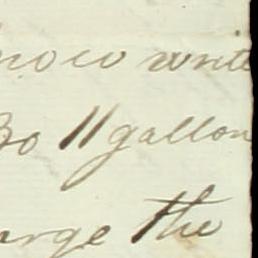 now write
30 11 gallon
arge the